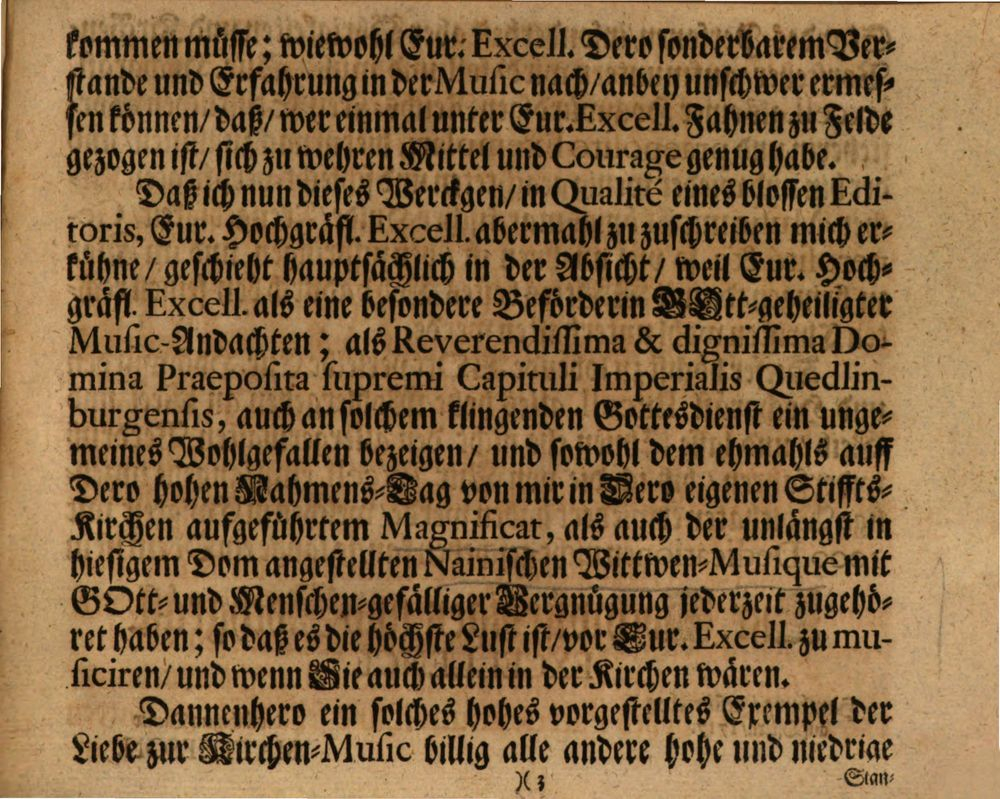 kommen müsse; wiewohl Eur. Excell. Dero sonderbarem Ver-
stande und Erfahrung in der Music nach/ anbey unschwer ermes-
sen können/ daß/ wer einmal unter Eur. Excell. Fahnen zu Felde
gezogen ist/ sich zu wehren Mittel und Courage genug habe.
Daß ich nun dieses Werckgen/ in Qualité eines blossen Edi-
toris, Eur. Hochgräfl. Excell. abermahl zu zuschreiben mich er-
kühne/ geschieht hauptsächlich in der Absicht/ weil Eur. Hoch-
gräfl. Excell. als eine besondere Beförderin GOtt-geheiligter
Music-Andachten; als Reverendissima & dignissima Do-
mina Praeposita supremi Capituli Imperialis Quedlin-
burgensis, auch an solchem klingenden Gottesdienst ein unge-
meines Wohlgefallen bezeigen/ und sowohl dem ehmahls auff
Dero hohen Nahmens-Tag von mir in Dero eigenen Stiffts-
Kirchen aufgeführtem Magnificat, als auch der unlängst in
hiesigem Dom angestellten Nainischen Wittwen-Musique mit
GOtt- und Menschen-gefälliger Vergnügung jederzeit zugehö-
ret haben; so daß es die höchste Lust ist/ vor Eur. Excell. zu mu-
siciren/ und wenn Sie auch allein in der Kirchen wären.
Dannenhero ein solches hohes vorgestelltes Exempel der
Liebe zur Kirchen-Music billig alle andere hohe und niedrige
)( 3 Stan-